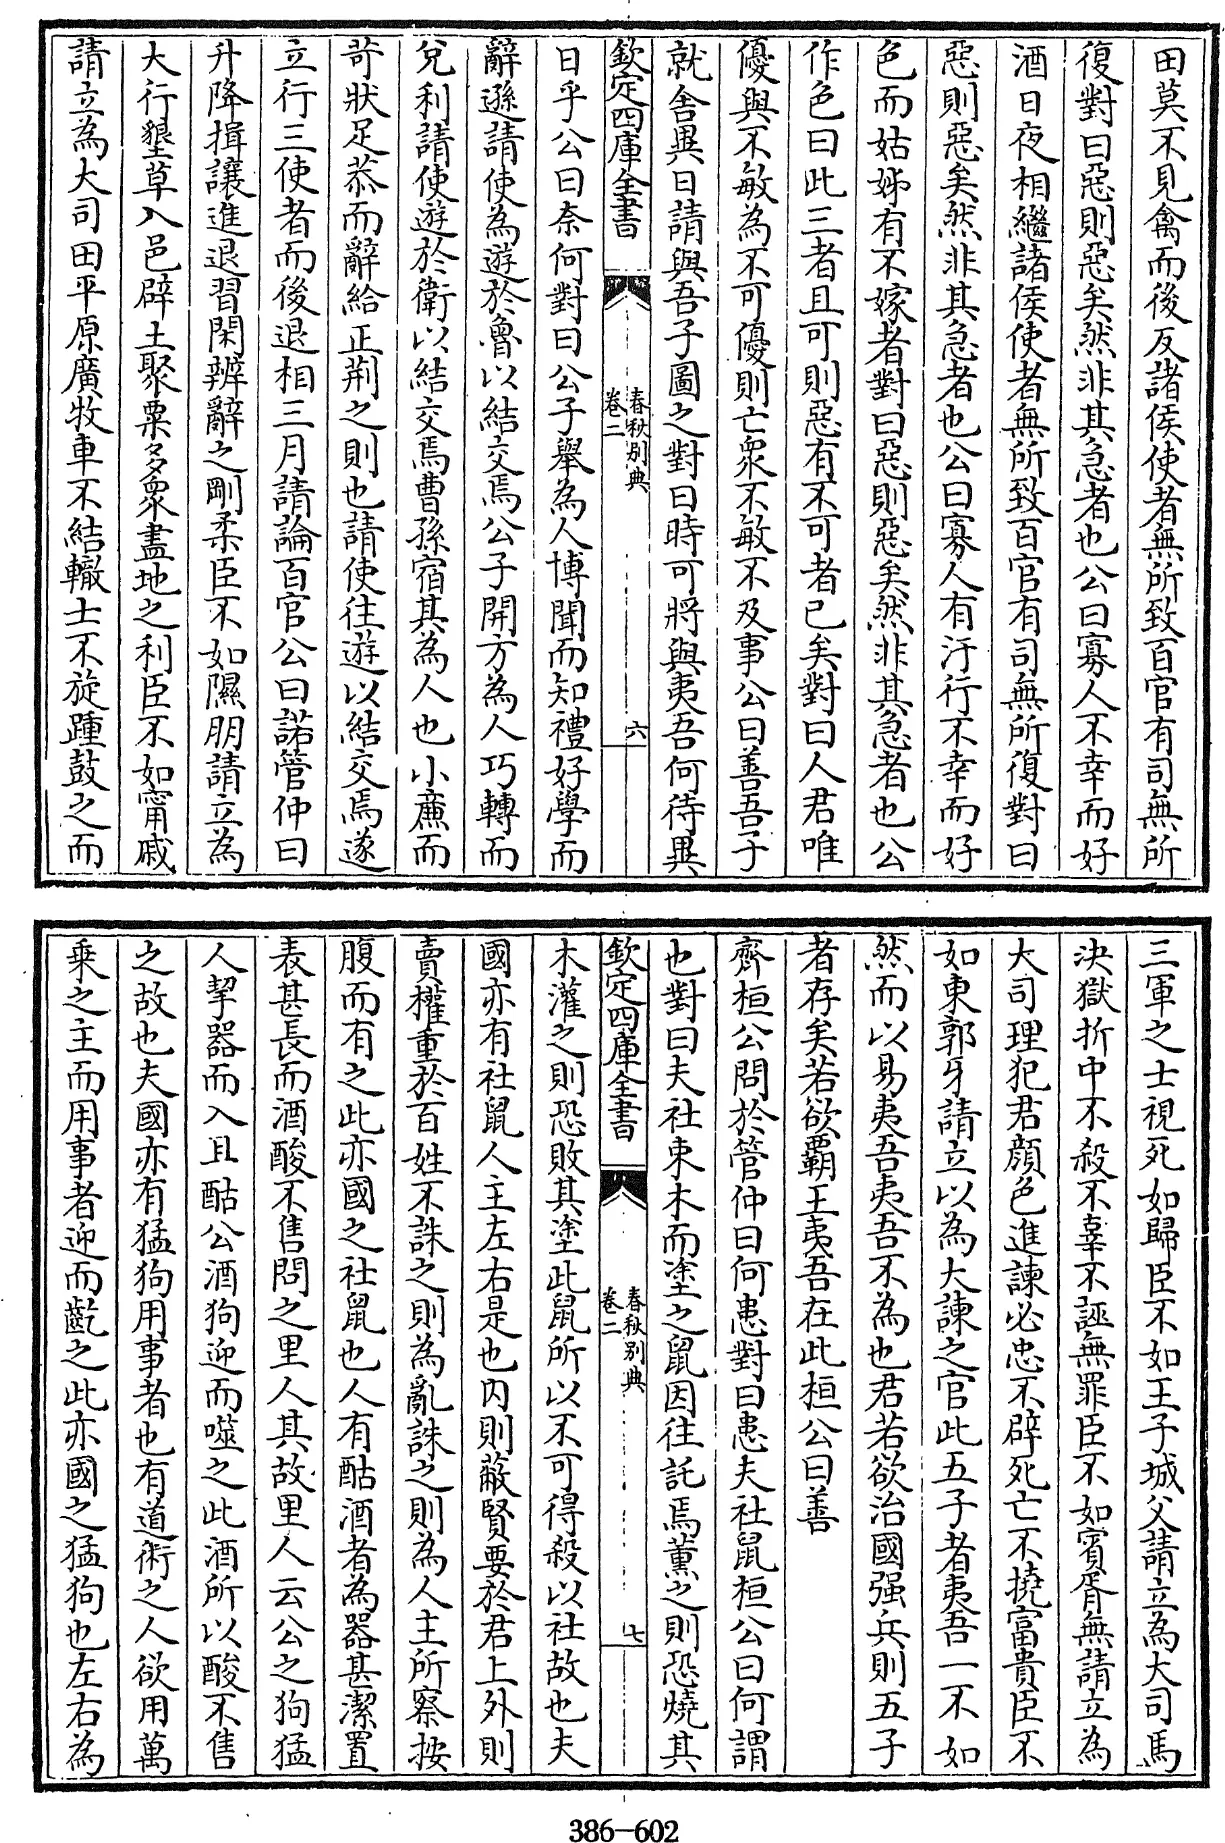 田莫不見禽而後反諸侯使者無所致百官有司無所
復對曰惡則惡矣然非其急者也公曰寡人不幸而好
酒日夜相繼諸侯使者無所致百官有司無所復對曰
惡則惡矣然非其急者也公曰寡人有汙行不幸而好
色而姑姊有不嫁者對曰惡則惡矣然非其急者也公
作色曰此三者且可則惡有不可者已矣對曰人君唯
優與不敏為不可優則亡衆不敏不及事公曰善吾子
就舍異日請與吾子圖之對曰時可將與夷吾何待異
欽定四庫全書
春秋別典
卷二
六
日乎公曰奈何對曰公子舉為人博聞而知禮好學而
辭遜請使為遊於魯以結交焉公子開方為人巧轉而
兌利請使遊於衛以結交焉曹孫宿其為人也小亷而
苛狀足恭而辭給正荆之則也請使往遊以結交焉遂
立行三使者而後退相三月請論百官公曰諾管仲曰
升降揖讓進退習閑辨辭之剛柔臣不如隰朋請立為
大行墾草入邑辟土聚粟多衆盡地之利臣不如甯戚
請立為大司田平原廣牧車不結轍士不旋踵鼓之而
三軍之士視死如歸臣不如王子城父請立為大司馬
決獄折中不殺不辜不誣無罪臣不如賓胥無請立為
大司理犯君顔色進諫必忠不辟死亡不撓富貴臣不
如東郭牙請立以為大諫之官此五子者夷吾一不如
然而以易夷吾夷吾不為也君若欲治國强兵則五子
者存矣若欲覇王夷吾在此桓公曰善
齊桓公問於管仲曰何患對曰患夫社鼠桓公曰何謂
也對曰夫社束木而塗之鼠因往託焉薫之則恐燒其
欽定四庫全書
春秋別典
卷二
七
木灌之則恐敗其塗此鼠所以不可得殺以社故也夫
國亦有社鼠人主左右是也内則蔽賢要於君上外則
賣權重於百姓不誅之則為亂誅之則為人主所察按
腹而有之此亦國之社鼠也人有酤酒者為器甚潔置
表甚長而酒酸不售問之里人其故里人云公之狗猛
人挈器而入且酤公酒狗迎而噬之此酒所以酸不售
之故也夫國亦有猛狗用事者也有道術之人欲用萬
乘之主而用事者迎而齕之此亦國之猛狗也左右為
386-602